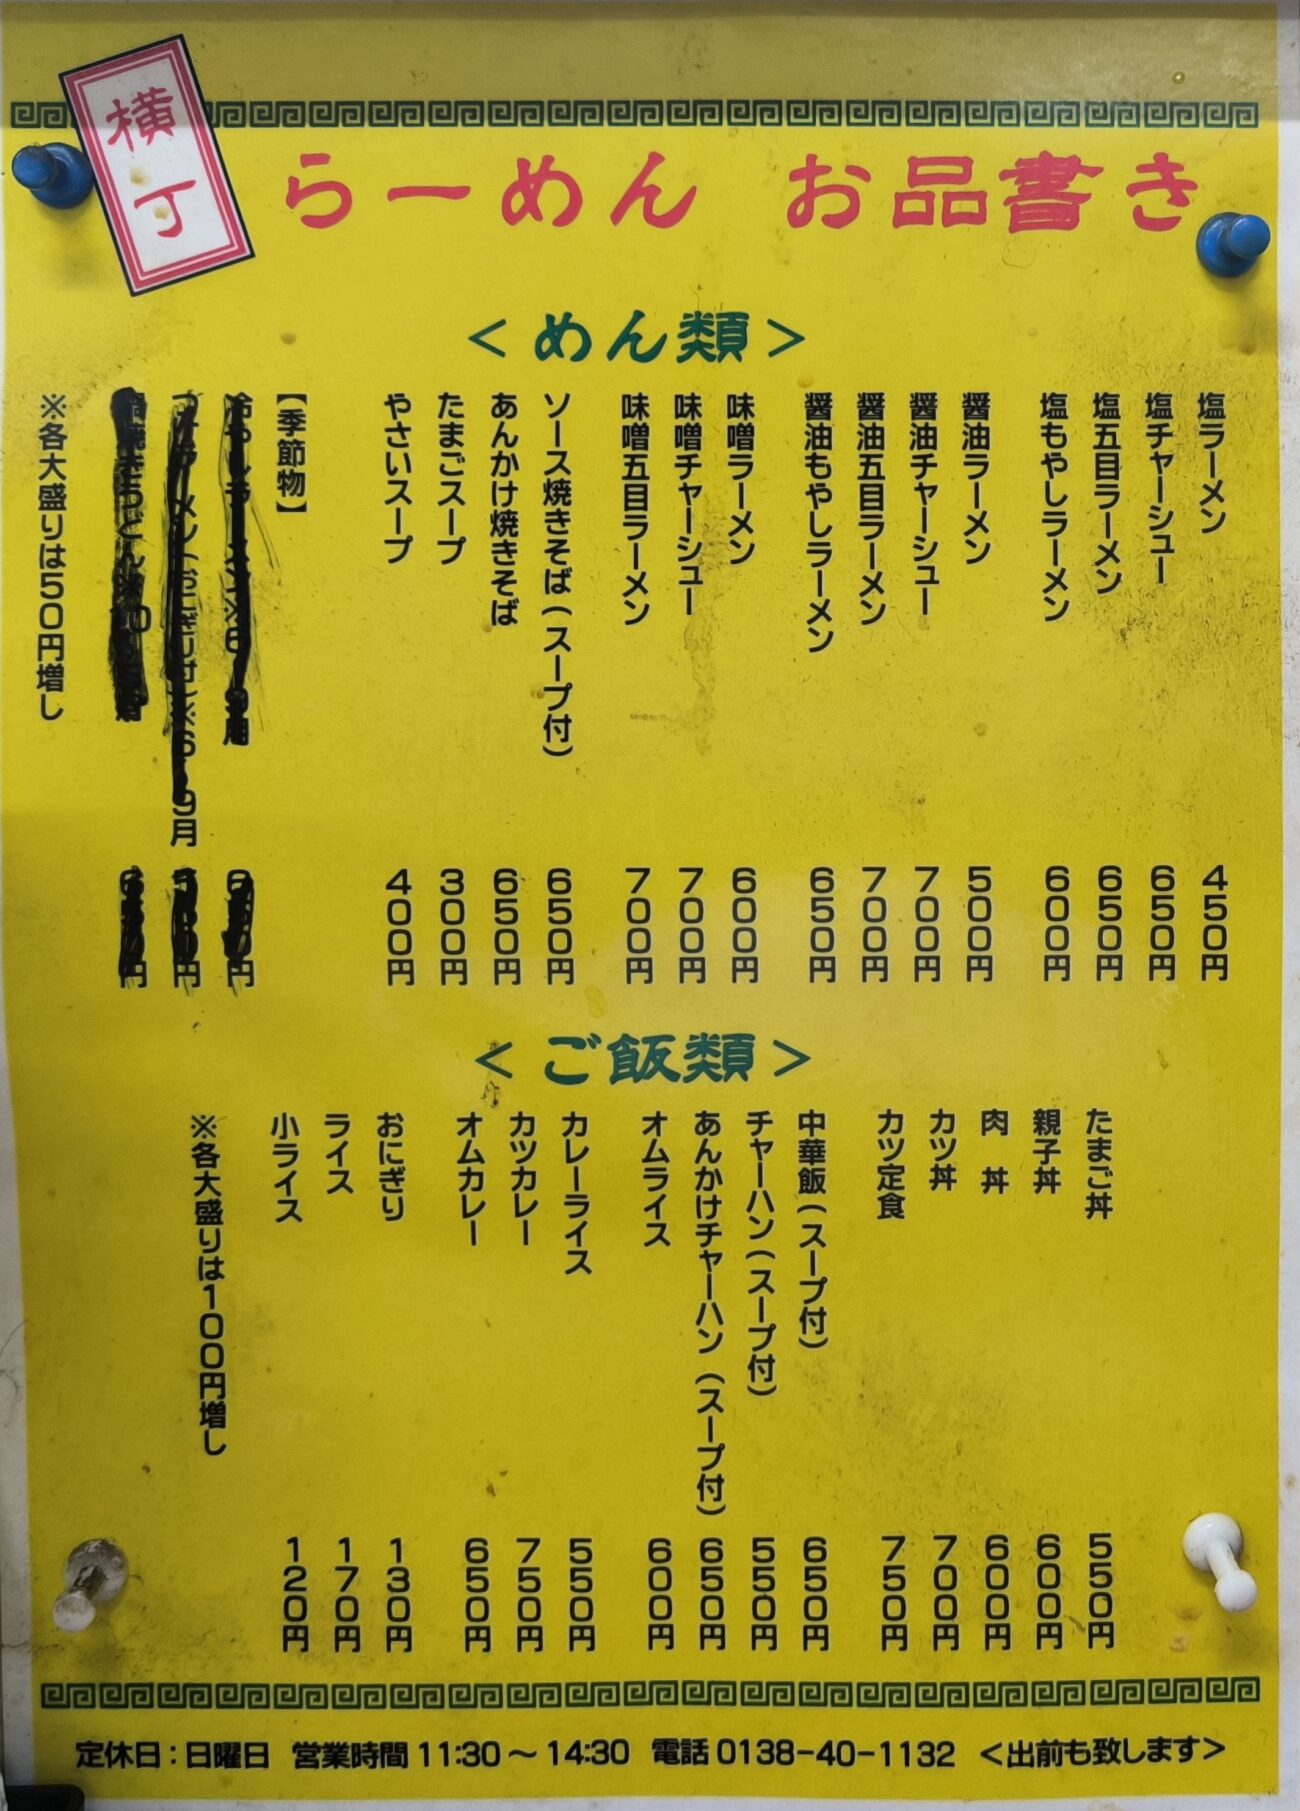 横丁
らーめん お品書き
<めん類>
塩ラーメン 450円
塩チャーシュー 650円
塩五目ラーメン 650円
塩もやしラーメン 600円
醤油ラーメン 500円
醤油チャーシュー 700円
醤油五目ラーメン 700円
醤油もやしラーメン 650円
味噌ラーメン 600円
味噌チャーシュー 700円
味噌五目ラーメン 700円
ソース焼きそば(スープ付) 650円
あんかけ焼きそば 650円
たまごスープ 300円
やさいスープ 400円
【季節物】
円
(おにぎり付)※6 9月 円
円
※各大盛りは50円増し
<ご飯類>
たまご丼 550円
親子丼 600円
肉 丼 600円
カツ丼 700円
カツ定食 750円
中華飯(スープ付) 650円
チャーハン(スープ付) 550円
あんかけチャーハン(スープ付) 650円
オムライス 600円
カレーライス 550円
カツカレー 750円
オムカレー 650円
おにぎり 130円
ライス 170円
小ライス 120円
※各大盛りは100円増し
定休日:日曜日 営業時間 11:30~14:30 電話 0138-40-1132 <出前も致します>